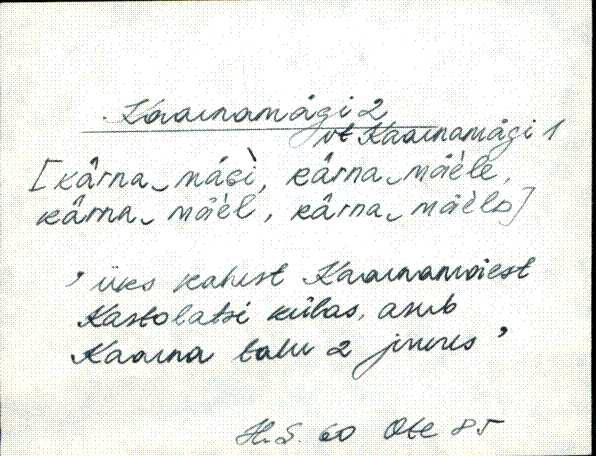 Kaarnamägi 2
vt Kaarnamägi 1
[kārna‿mäɢì, kārna‿mäèle,
kārna‿mäèl, kārna‿mäèlᴅ]
' üks kahest Kaarnamäest
Kastolatsi külas, asub
Kaarna talu 2 juures '
H. S. 60 Ote 85